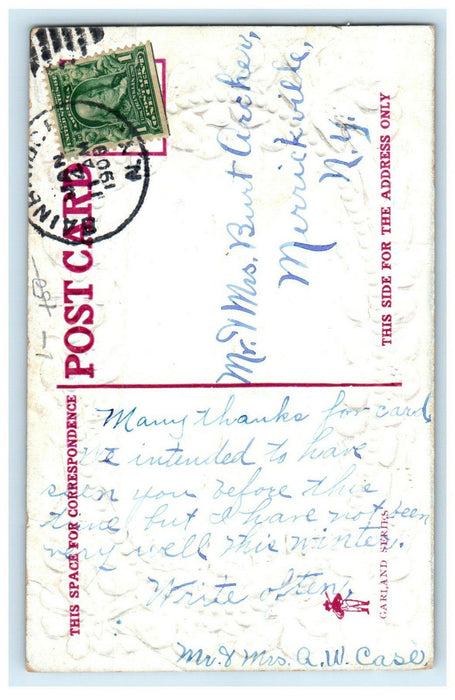 POST CARD
THIS SPACE FOR CORRESPONDENCE
THIS SIDE FOR THE ADDRESS ONLY
JAN
AM
1909
N.Y.
1
1
Mr. & Mrs. Burt Archer,
Merrickville,
N.Y.
Many thanks for card
we intended to have
seen you before this
time but I have not been
very well this winter.
Write often,
Mr. & Mrs. A. W. Case
GARLAND SERIES